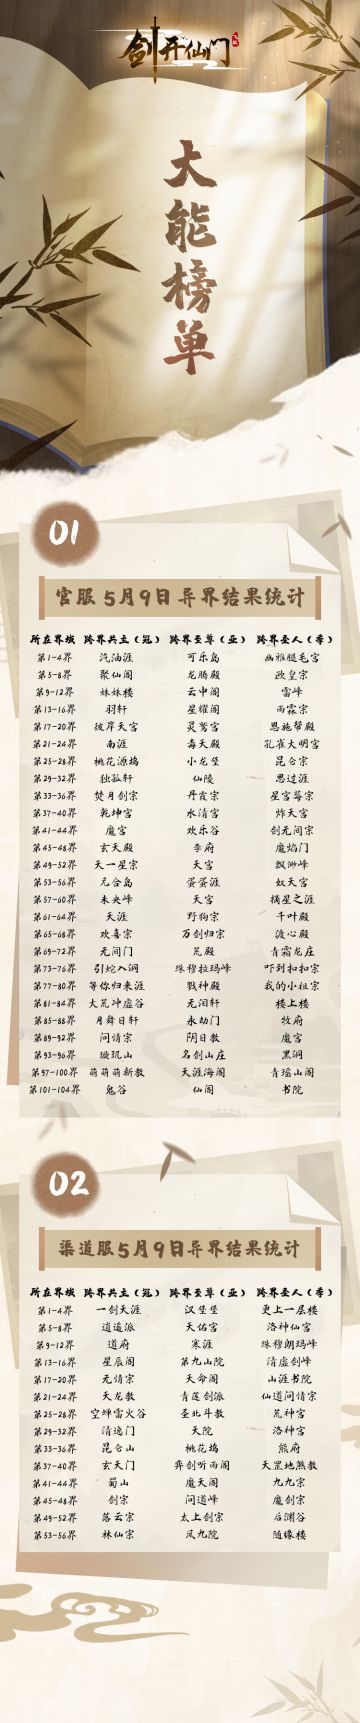 剑开仙门
大能榜单
01
官服5月9日异界结果统计
所在界域 跨界共主（冠） 跨界至尊（亚） 跨界圣人（季）
第1-4界 汽油涯 可乐岛 幽雅腿毛宫
第5-8界 聚仙阁 龙腾殿 欧皇宗
第9-12界 妹妹楼 云中阁 雷峰
第13-16界 羽轩 星耀阁 雨霖宗
第17-20界 彼岸天宫 灵鹫宫 恩施帮殿
第21-24界 南涯 毒天殿 孔雀大明宫
第25-28界 桃花源坞 小龙堡 昆仑宗
第29-32界 独孤轩 仙陵 思过涯
第33-36界 焚月剑宗 丹霞宗 星宫莓宗
第37-40界 乾坤宫 水清宫 炸天宫
第41-44界 魔宫 欢乐谷 剑无间宗
第45-48界 玄天殿 李府 魔焰门
第49-52界 天一星宗 天宫 飘渺峰
第53-56界 元合岛 蛋蛋涯 奴天宫
第57-60界 未央峰 天宫 摘星之涯
第61-64界 天涯 野狗宗 千叶殿
第65-68界 欢喜宗 万剑归宗 渡心殿
第69-72界 无间门 荒殿 青霜龙庄
第73-76界 引蛇入洞 珠穆拉玛峰 吓到扣扣宗
第77-80界 等你归来涯 戮神殿 我的小祖宗
第81-84界 大荒冲虚谷 无泪轩 楼上楼
第85-88界 月舞日轩 永劫门 牧府
第89-92界 问情宗 阴日教 魔宫
第93-96界 璇玑山 名剑山庄 黑洞
第97-100界 萌萌萌新教 天涯海阁 青瑶山阁
第101-104界 鬼谷 仙阁 书院
02
渠道服5月9日异界结果统计
所在界域 跨界共主（冠） 跨界至尊（亚） 跨界圣人（季）
第1-4界 一剑天涯 汉堡堡 更上一层楼
第5-8界 逍遥派 天佑宫 洛神仙宫
第9-12界 道府 寒涯 珠穆朗玛峰
第13-16界 星辰阁 第九山院 清虚剑峰
第17-20界 无情宗 天命阁 山涯书院
第21-24界 天龙教 青莲剑派 仙道问情宗
第25-28界 空蝉雷火谷 圣北斗教 荒神宫
第29-32界 清逸门 天院 洛神宫
第33-36界 昆仑山 桃花坞 熊府
第37-40界 玄天门 弈剑听雨阁 天罡地煞教
第41-44界 蜀山 魔天阁 九九宗
第45-48界 剑宗 问道峰 魔剑宗
第49-52界 落云宗 太上剑宗 后渊谷
第53-56界 林仙宗 凤九院 随缘楼